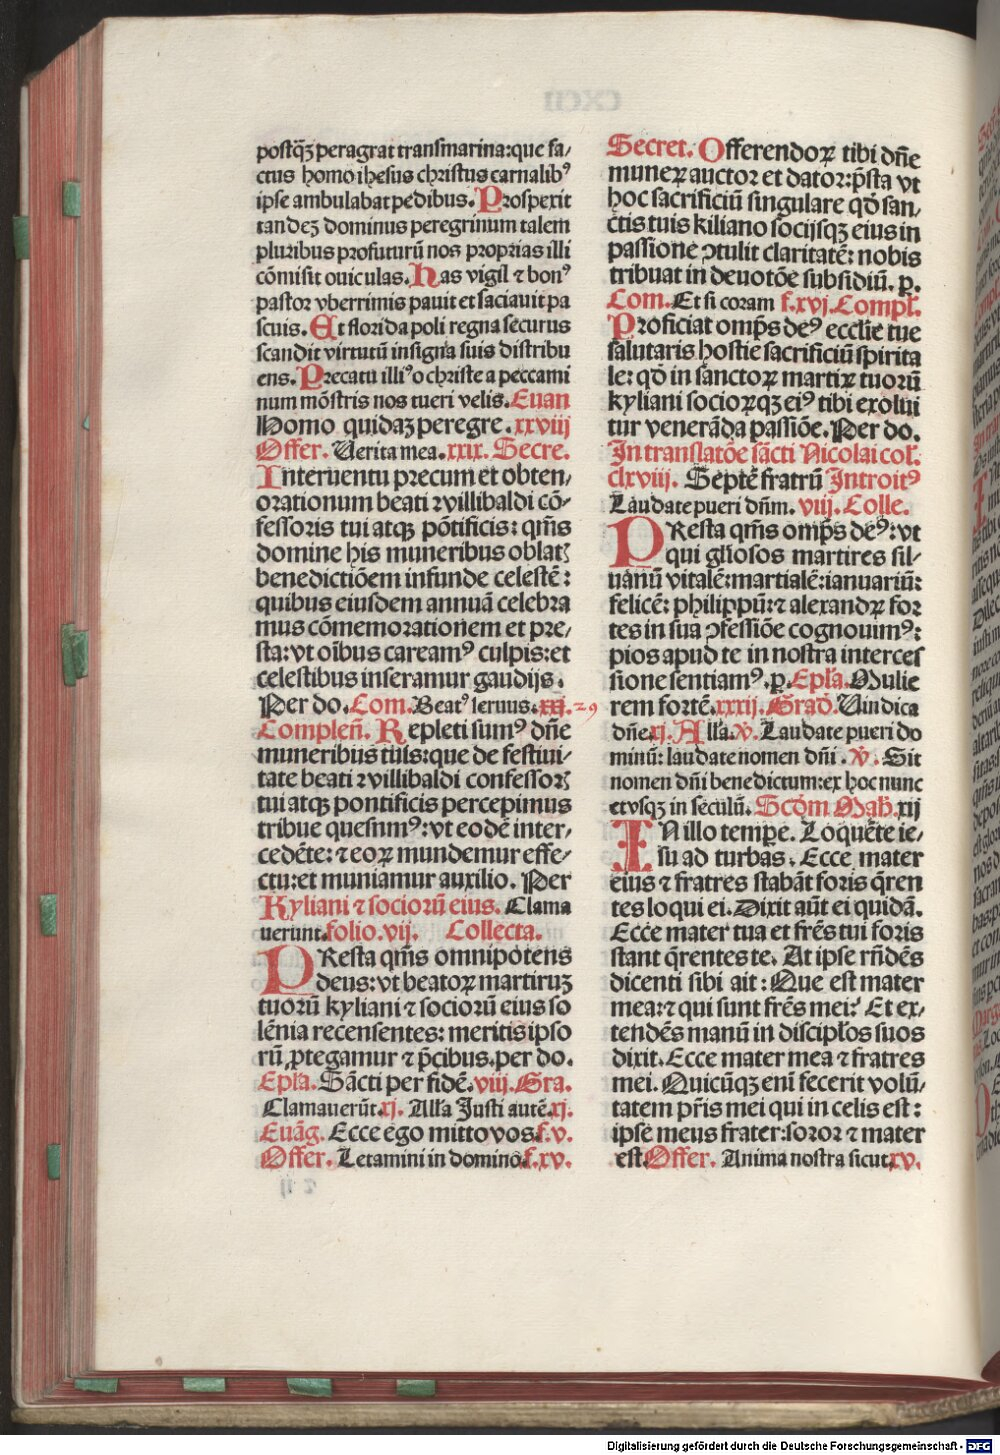 postqꝫ peragrat transmarina: que fa/
ctus homo ihesus christus carnalibꝰ
ipse ambulabat pedibus. Prospexit
tandeꝫ dominus peregrinum talem
pluribus profuturū nos proprias illi
cōmisit ouiculas. Has vigil ⁊ bonꝰ
pastor vberrimis pauit et saciauit pa
scuis. Et florida poli regna securus
scandit virtutū insigna suis distribu
ens. Precatu illiꝰ o christe a peccami
num mōstris nos tueri velis. Euan
Homo quidaꝫ peregre. xxviij
Offer. Uerita mea. xxix. Secre.
Interuentu precum et obten/
orationum beati ꝛvillibaldi cō-
fessoris tui atqꝫ pōtificis: qm̄s
domine his muneribus oblatꝭ
benedictiōem infunde celestē:
quibus eiusdem annuā celebra
mus cōmemorationem et pre/
sta: vt oībus careamꝰ culpis: et
celestibus inseramur gaudijs.
Per do. Com. Beatꝰ seruus. xxj. 29
Complen̄. Repleti sumꝰ dn̄e
muneribus tuis: que de festiui-
tate beati ꝛvillibaldi confessorꝭ
tui atqꝫ pontificis percepimus
tribue quesnmꝰ: vt eodē inter/
cedēte: ⁊ eoꝝ mundemur effe/
ctu: et muniamur auxilio. Per
Kyliani ⁊ sociorū eius. Clama
uerunt. folio. vij. Collecta.
PResta qm̄s omnipotens
deus: vt beatoꝝ martiruꝫ
tuorū kyliani ⁊ sociorū eius so
lēnia recensentes: meritis ipso
rū ꝓtegamur ⁊ p̄cibus. per do.
Epl̄a. Sācti per fidē. viij. Gra.
Clamauerūt. xj. All'a Justi autē. xj.
Euāg. Ecce ego mitto vos. f. v.
Offer. Letamini in domino. f. xv.
Secret. Offerendoꝝ tibi dn̄e
muneꝝ auctor et dator: p̄sta vt
hoc sacrificiū singulare qd̄ san/
ctis tuis kiliano socijsqꝫ eius in
passione ꝯtulit claritatē: nobis
tribuat in deuotōe subsidiū. p.
Com. Et si coram f. xvj. Compl'.
Proficiat omp̄s deꝰ ecclie tue
salutaris hostie sacrificiū spirita
le: qd̄ in sanctoꝝ martiꝝ tuorū
kyliani socioꝝqꝫ eiꝰ tibi exolui
tur venerāda passiōe. Per do.
In translatōe sācti Nicolai col'.
clxviij. Septē fratrū Introitꝰ
Laudate pueri dn̄m. viij. Colle.
PResta qm̄s omp̄s deꝰ: vt
qui gl'iosos martires sil-
uanū vitalē: martialē: ianuariū:
felicē: philippū: ⁊ alexandꝝ for
tes in sua ꝯfessiōe cognouimꝰ:
pios apud te in nostra interces
sione sentiamꝰ. p. Epl'a. Mulie
rem fortē. xxxij. Grad'. Uindica
dn̄e. xj. All'a. v̄. Laudate pueri do
minū: laudate nomen dn̄i. v̄. Sit
nomen dn̄i benedictum: ex hoc nunc
et vsqꝫ in seculū. Scd̄m Math. xij
IN illo tempe. Loquēte ie/
su ad turbas. Ecce mater
eius ⁊ fratres stabāt foris q̄ren
tes loqui ei. Dixit aūt ei quidā.
Ecce mater tua et fr̄es tui foris
stant q̄rentes te. At ipse rn̄dēs
dicenti sibi ait: Que est mater
mea: ⁊ qui sunt fr̄es mei? Et ex-
tendēs manū in discipl'os suos
dixit. Ecce mater mea ⁊ fratres
mei. Quicūqꝫ eni fecerit volū/
tatem pr̄is mei qui in celis est:
ipse meus frater: soror ⁊ mater
est. Offer. Anima nostra sicut. xv.
Digitalisierung gefördert durch die Deutsche Forschungsgemeinschaft - DFG